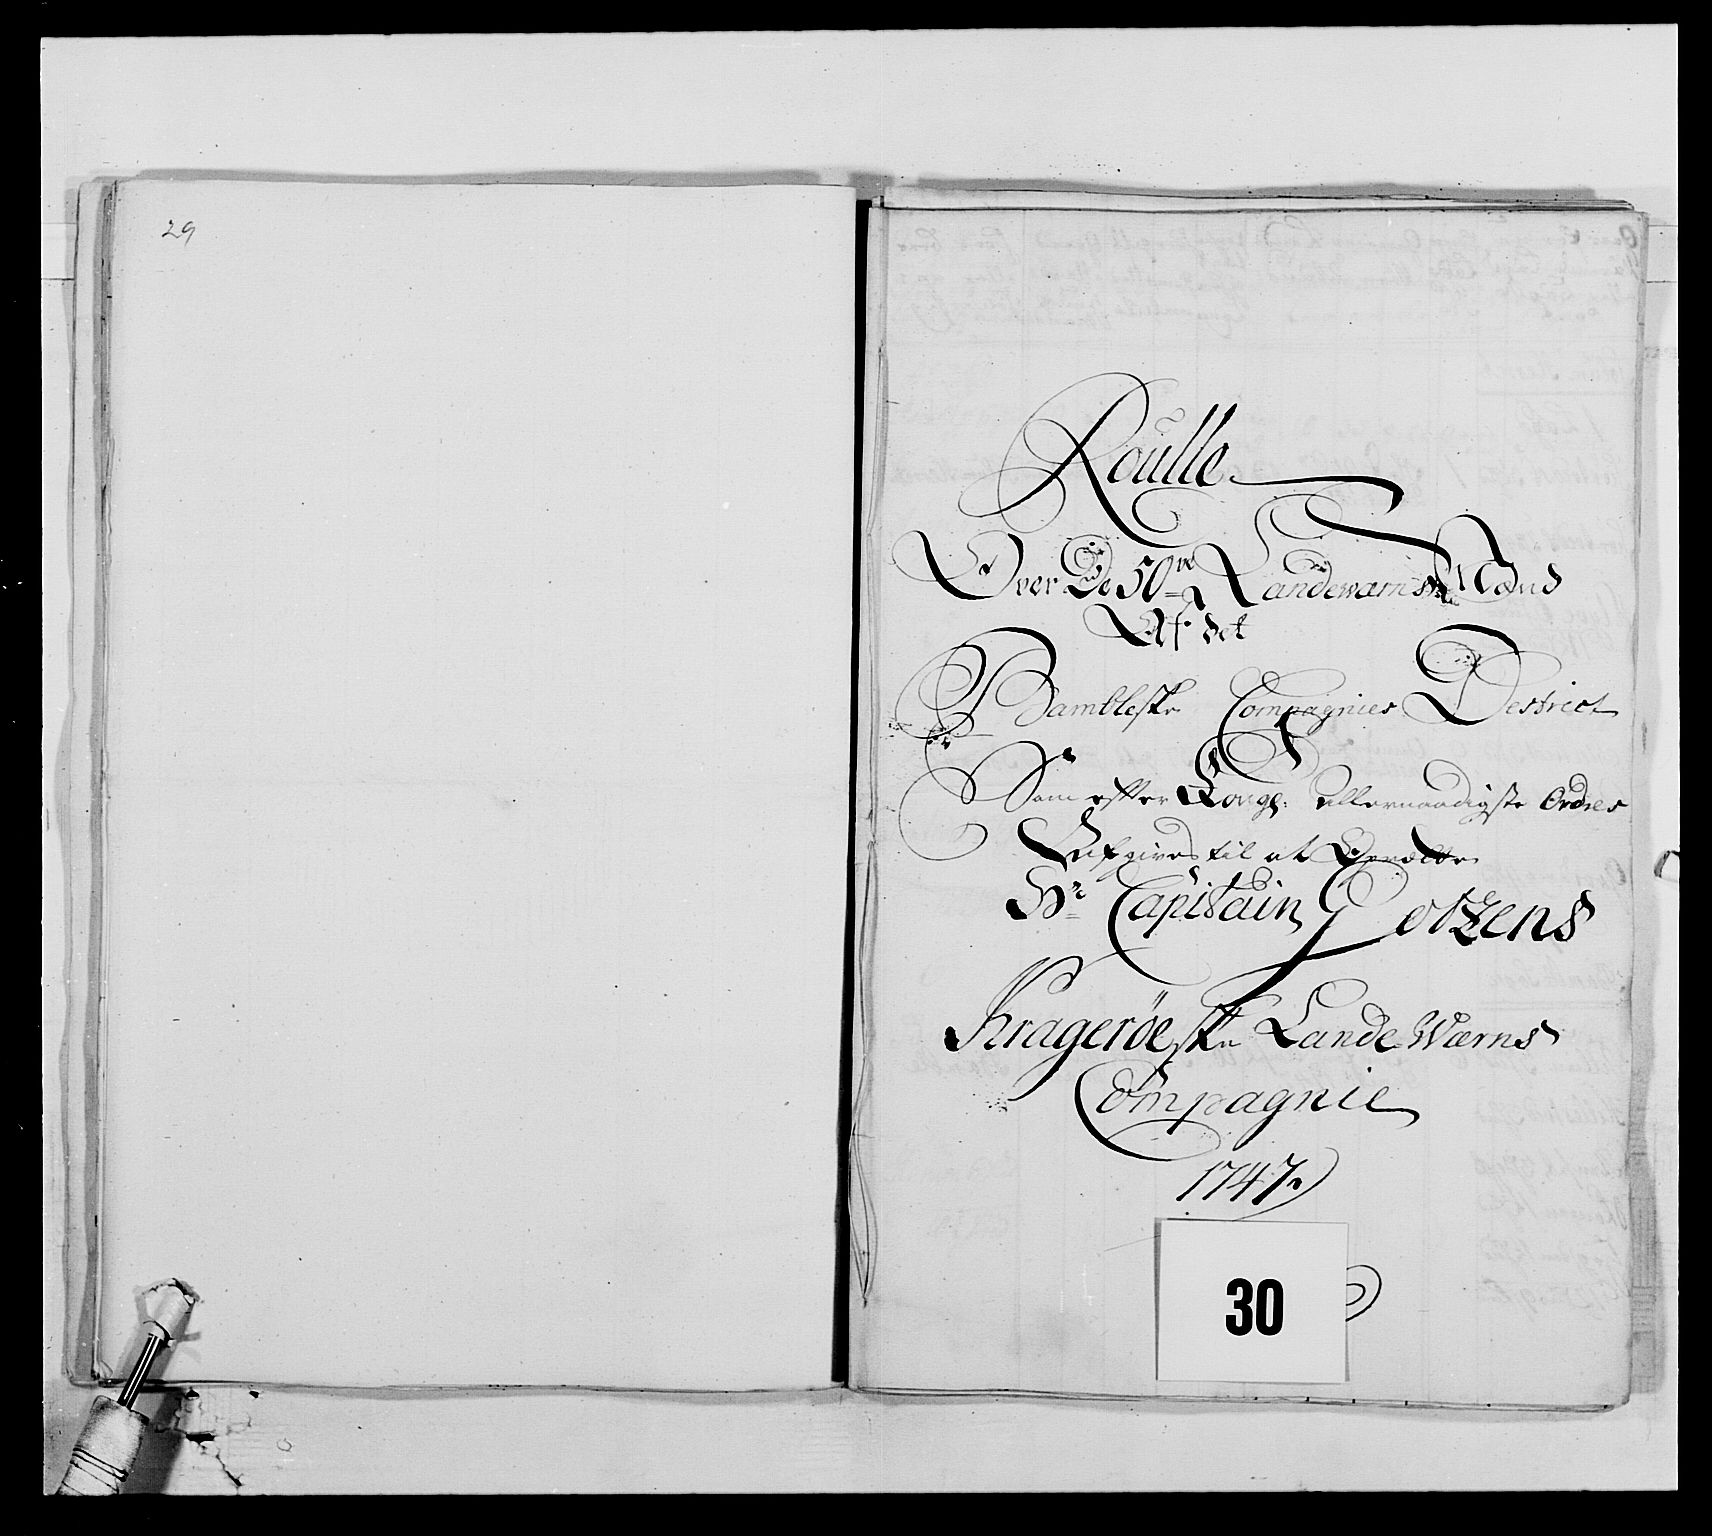 29
Roulle
Over De 50ve Landeværns Mænd
Af det
Bambleske Compagnies District
Som efter Kongl: allernaadigste Ordres
Aufgives til at Oprætte
Hr Capitain Gotzens
Kragerøeske Lande Wærns
Compagnie
1747.
30